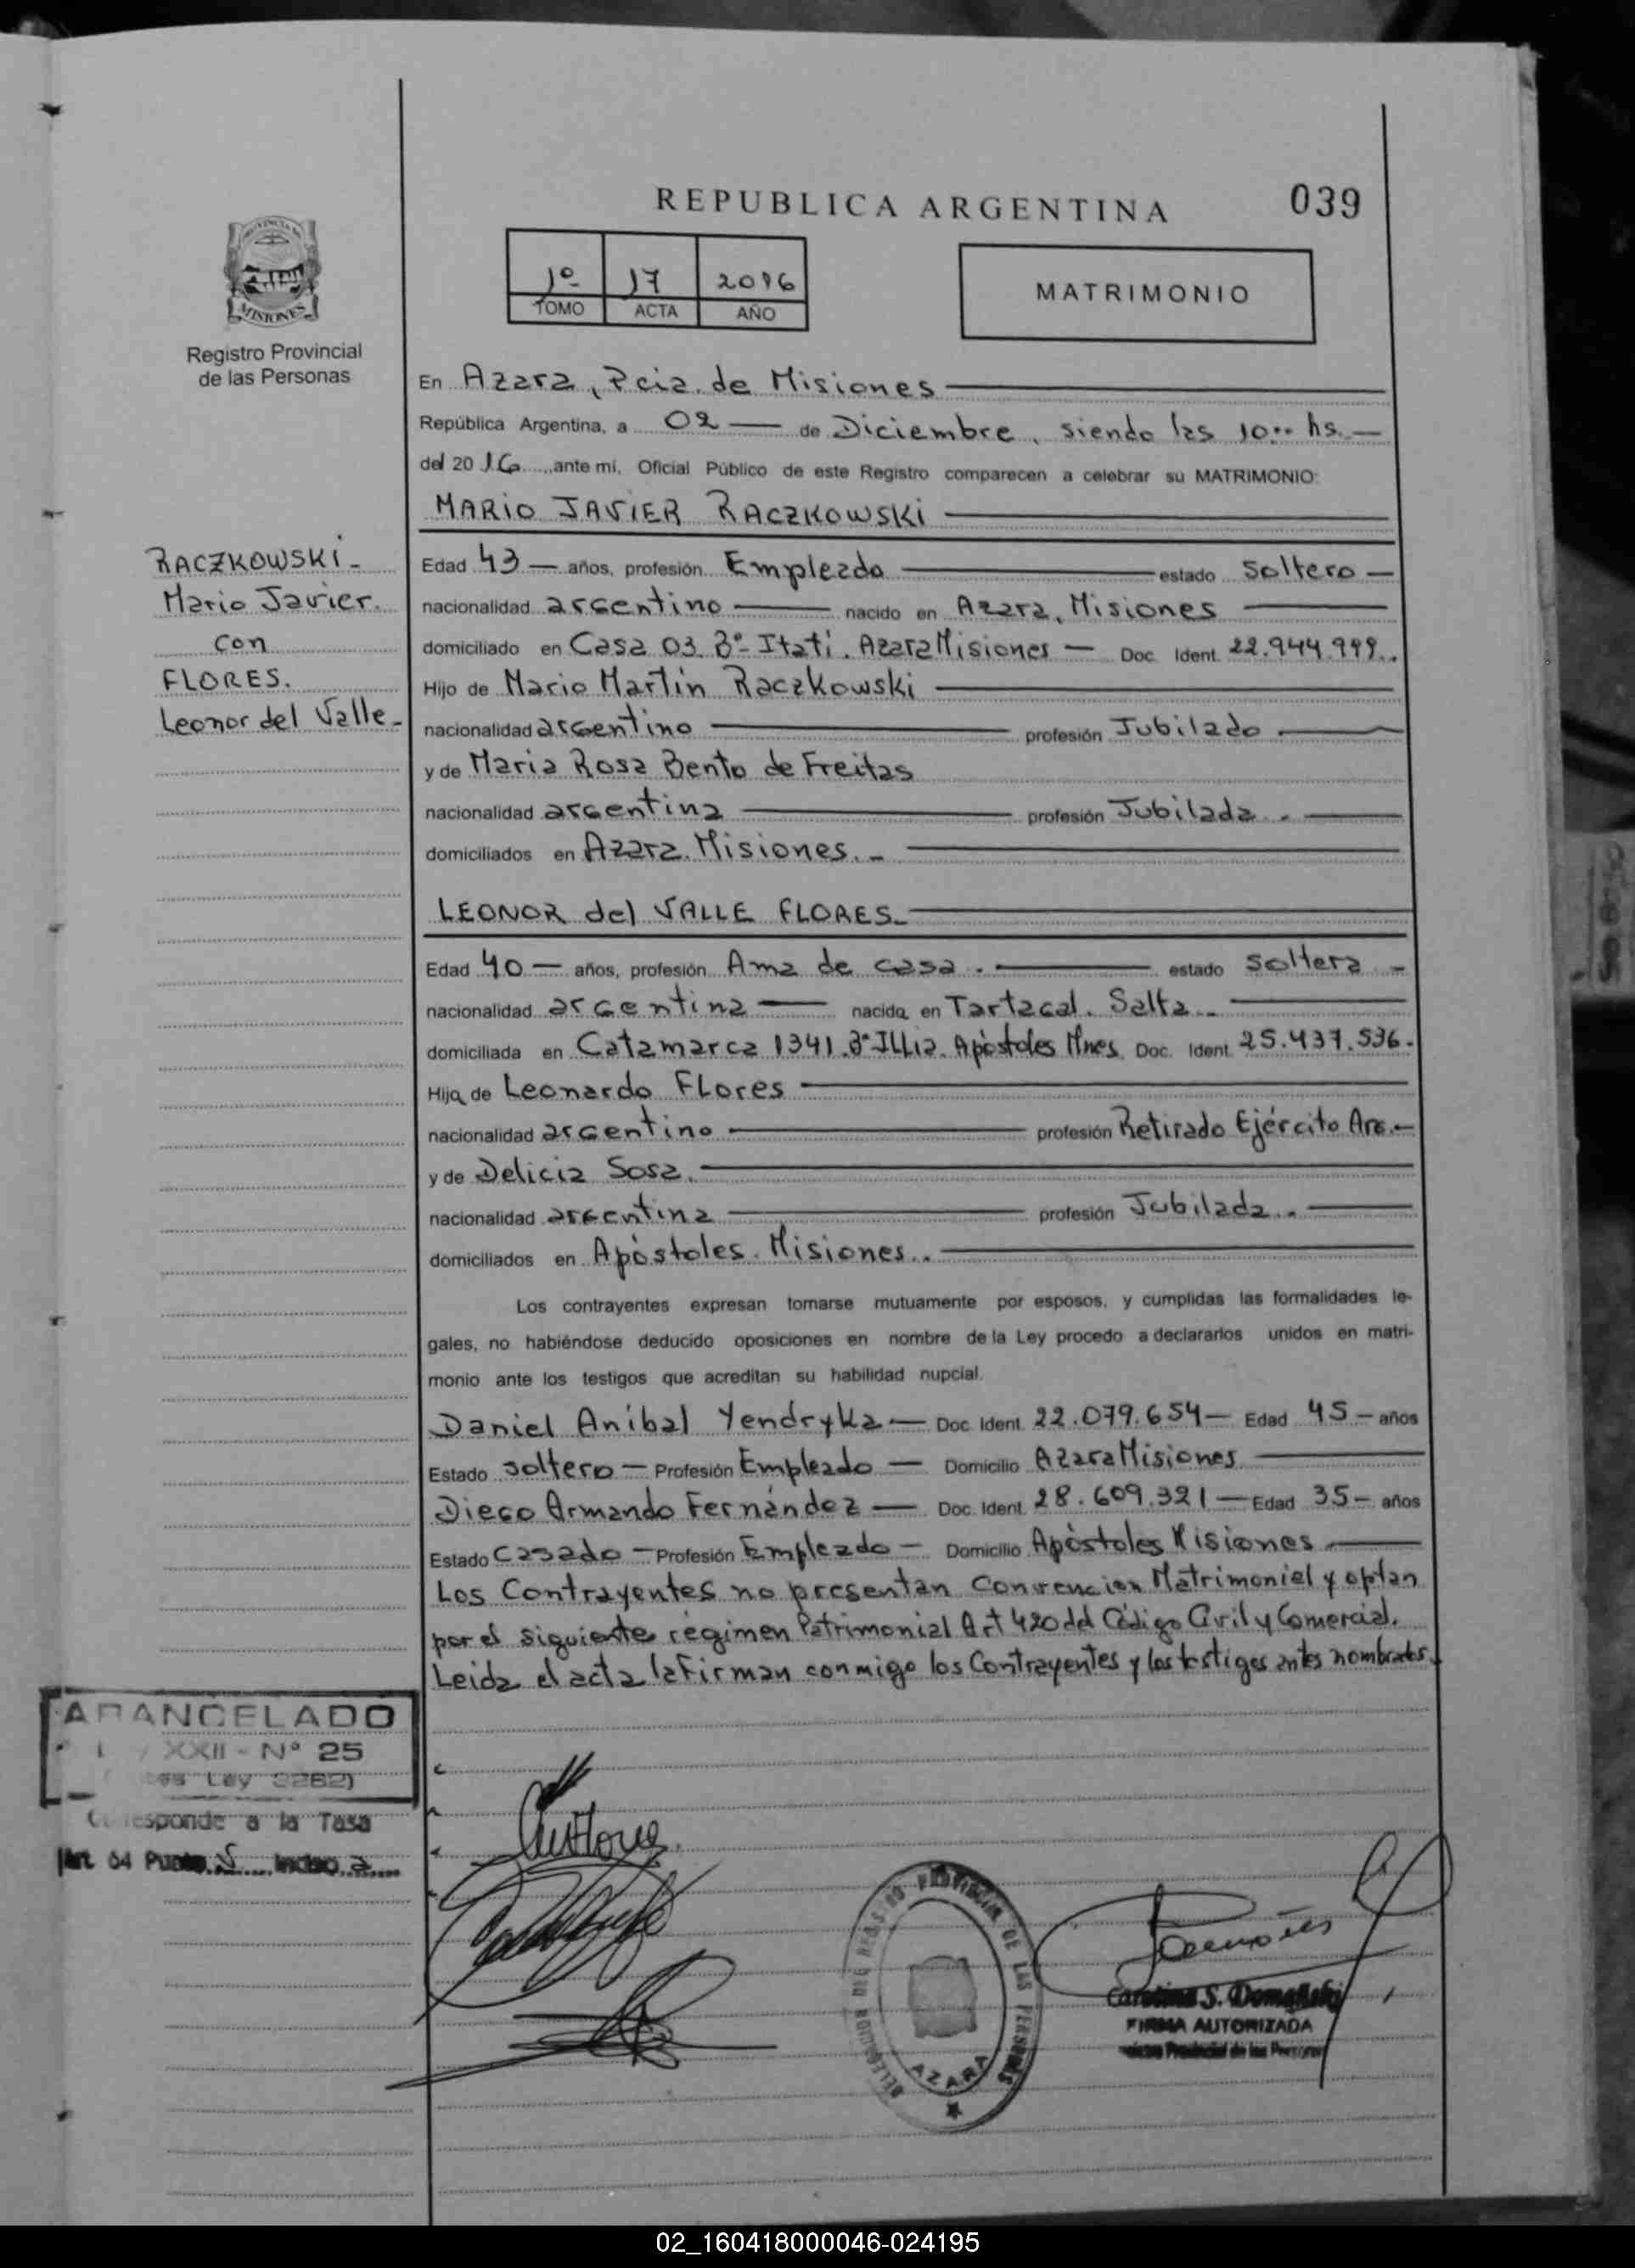 REPUBLICA ARGENTINA
039
PROVINCIA DE
MISIONES
Registro Provincial
de las Personas
1º 17 2016
TOMO ACTA AÑO
MATRIMONIO
En Azara, Pcia. de Misiones
República Argentina, a 02 — de Diciembre, siendo las 10.00 hs.—
del 2016, ante mí, Oficial Público de este Registro comparecen a celebrar su MATRIMONIO:
MARIO JAVIER RACZKOWSKI
RACZKOWSKI-
Mario Javier.
con
FLORES.
Leonor del Valle-
Edad 43 — años, profesión Empleado — estado Soltero —
nacionalidad argentino — nacido en Azara, Misiones
domiciliado en Casa 03 Bº- Itatí. Azara Misiones — Doc. Ident. 22.944.999..
Hijo de Mario Martín Raczkowski
nacionalidad argentino — profesión Jubilado
y de Maria Rosa Bento de Freitas
nacionalidad argentina — profesión Jubilada.-
domiciliados en Azara. Misiones.-
LEONOR del VALLE FLORES-
Edad 40 — años, profesión Ama de casa. — estado soltera -
nacionalidad argentina — nacida en Tartagal. Salta.-
domiciliada en Catamarca 1341.Bº Illia. Apóstoles Mnes. Doc. Ident. 25.437.536.
Hija de Leonardo FLores
nacionalidad argentino — profesión Retirado Ejército Arg.-
y de Delicia Sosa.
nacionalidad argentina — profesión Jubilada.-
domiciliados en Apóstoles. Misiones..
Los contrayentes expresan tomarse mutuamente por esposos, y cumplidas las formalidades le-
gales, no habiéndose deducido oposiciones en nombre de la Ley procedo a declararlos unidos en matri-
monio ante los testigos que acreditan su habilidad nupcial.
Daniel Aníbal Yendryka — Doc. Ident. 22.079.654 — Edad 45 — años
Estado soltero — Profesión Empleado — Domicilio Azara Misiones
Diego Armando Fernández — Doc. Ident. 28.609.321 — Edad 35 — años
Estado Casado — Profesión Empleado — Domicilio Apóstoles Misiones
Los Contrayentes no presentan convencion Matrimonial y optan
por el siguiente régimen Patrimonial Art 420 del Código Civil y Comercial.
Leida el acta la Firman conmigo los Contrayentes y los testigos antes nombrados.
ARANCELADO
XXII - Nº 25
Ley 3262)
Corresponde a la Tasa
Art. 64 Punto 5 Inciso a
DELEGACION DEL REGISTRO PROVINCIAL DE LAS PERSONAS
AZARA
Carolina S. Domański
FIRMA AUTORIZADA
Provincial de las Personas
02_160418000046-024195